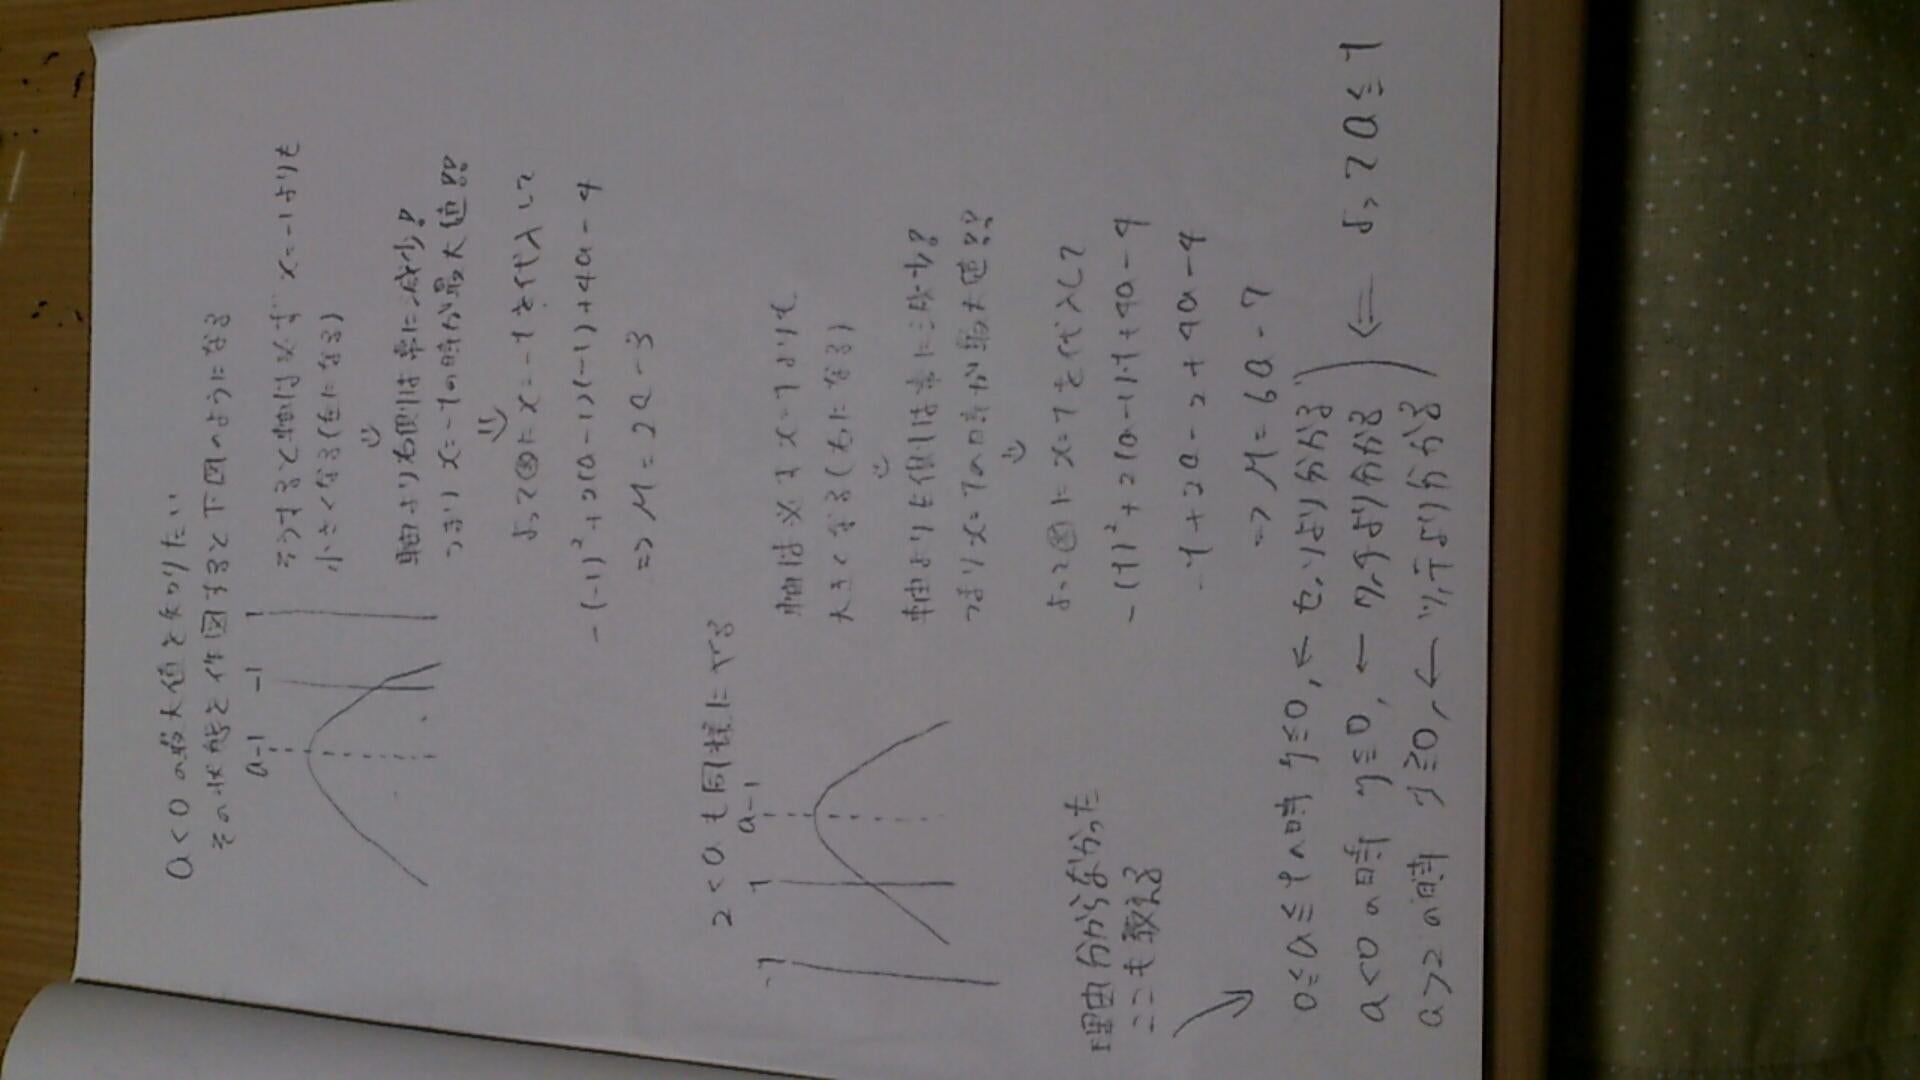 a<0の最大値を知りたい
その状態を作図すると下図のようになる
a-1 -1 1
そうすると軸は必ず x=-1よりも
小さくなる(左になる)
軸より右側は常に減少!
つまり x=-1の時が最大値!!
よって⊗に x=-1を代入して
-(-1)²+2(a-1)(-1)+4a-4
=> M=2a-3
2<a も同様にやる
-1 1 a-1
軸は必ず x=1よりも
大きくなる(右になる)
軸より左側は常に減少?
つまり x=1の時が最大値??
よって⊗に x=1を代入して
-(1)²+2(a-1)・1+4a-4
-1+2a-2+4a-4
=> M=6a-7
理由分からなかった
ここも教える
0≦a≦1の時 y≦0, ← セ,ソより分かる
a<0の時 y≦0, ← ク,ケより分かる
a>2の時 y≧0, ← ツ,テより分かる
⇐ よって a≦1